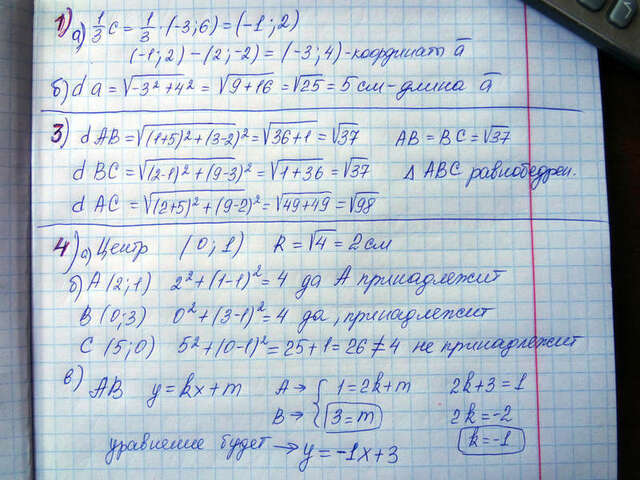 1) а) 1/3 c = 1/3 · (-3; 6) = (-1; 2)
(-1; 2) - (2; -2) = (-3; 4) - координаты a̅
б) d a = √-3² + 4² = √9+16 = √25 = 5 см - длина a̅
3) d AB = √(1+5)² + (3-2)² = √36+1 = √37 AB = BC = √37
d BC = √(2-1)² + (9-3)² = √1+36 = √37 Δ ABC равнобедрен.
d AC = √(2+5)² + (9-2)² = √49+49 = √98
4) а) Центр (0; 1) R = √4 = 2 см
б) A (2; 1) 2² + (1-1)² = 4 да A принадлежит
B (0; 3) 0² + (3-1)² = 4 да, принадлежит
C (5; 0) 5² + (0-1)² = 25+1 = 26 ≠ 4 не принадлежит
в) AB y = kx + m A → { 1 = 2k + m 2k + 3 = 1
B → { 3 = m 2k = -2
k = -1
уравнение будет → y = -1x + 3